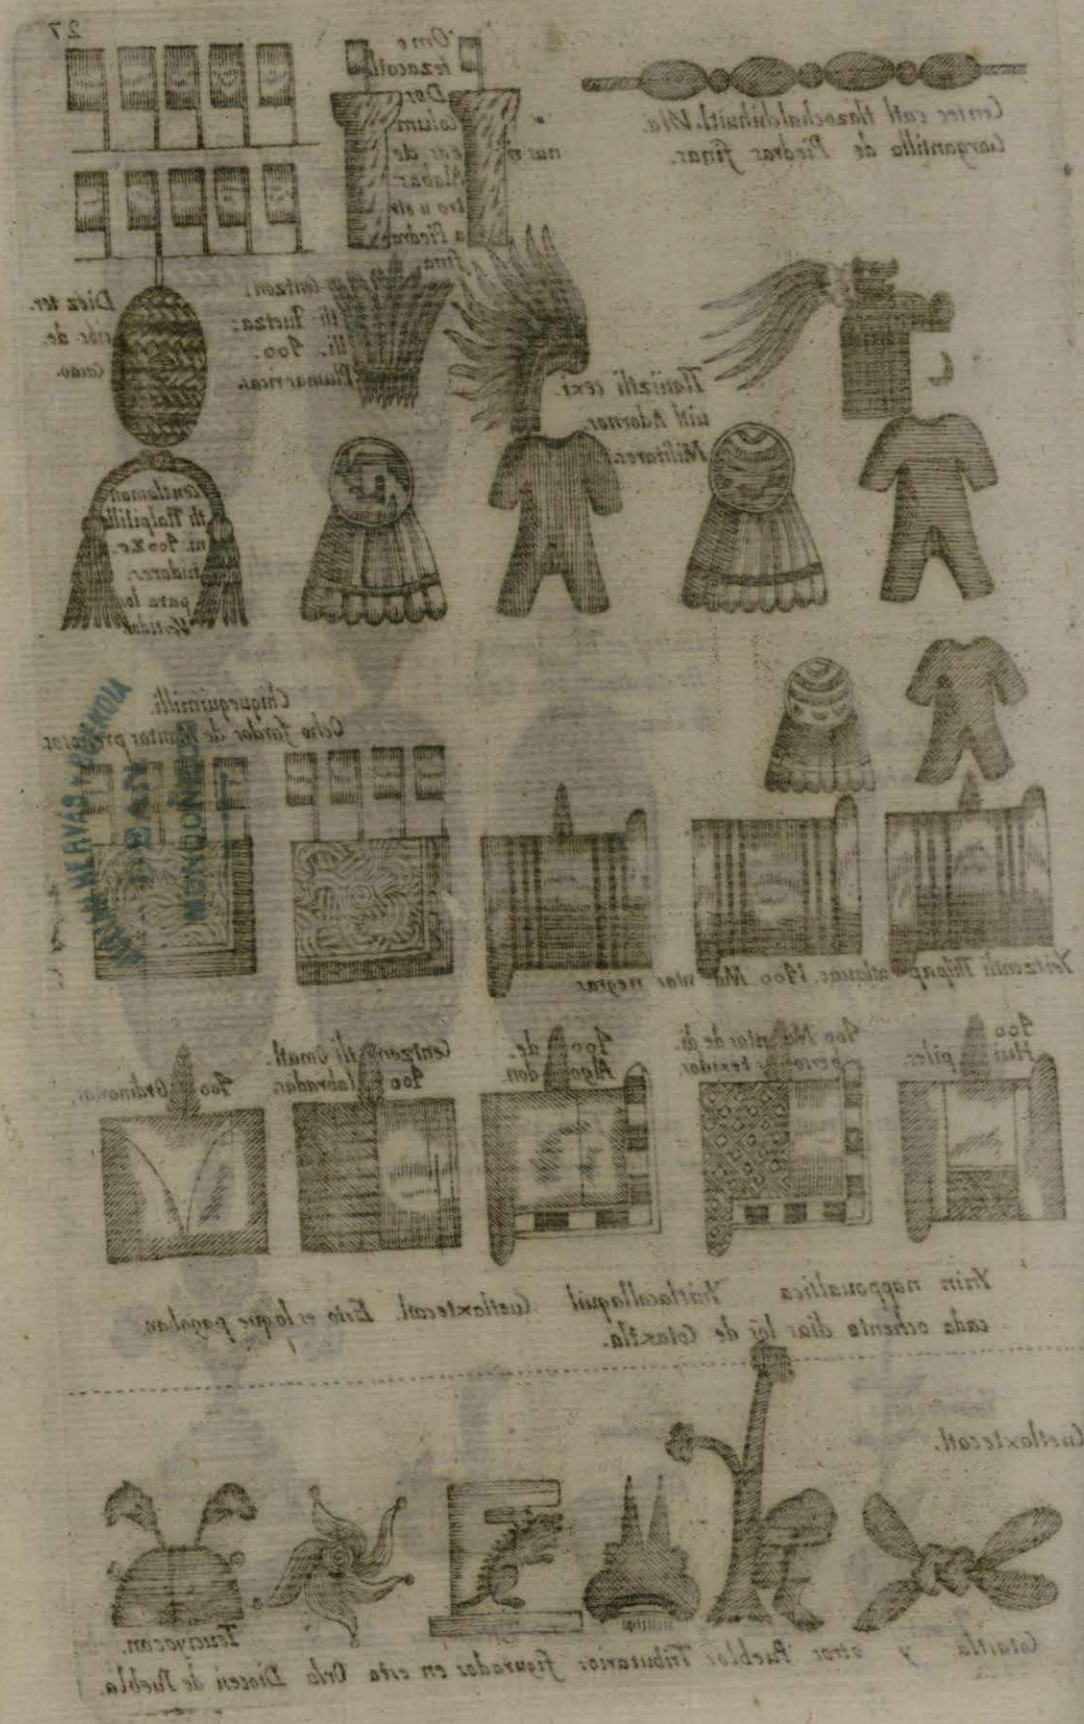 27
Ome
tezacatl
Dos
Colum
nas ricas de
Alabas
tro u otr
a Piedra
fina
Centec catl tlazochalchihuitl. Vna
Gargantilla de Piedras finas.
Diéz ter.
cios de.
Cacao.
Centzon:
tli Quetza:
lli. 400.
Plumas ricas.
Tlaviztli cexi.
uitl Adornos.
Militares.
Centlaman
tli Tlalpilili
ni. 400 Ze
nidores
para los
Vestidos
Chiquequimilli.
Ocho fardos de Mantas preciosas
Yeitzontli Thipap atlavac. 1400. Man tas negras
400 Ordinarias.
Centzon tli Omatl.
400 labradas.
400 de.
Algo don.
400 Mantas de di
versos texidos
400
Hui piles.
Ynin nappoualtica Yntlacallaquil Cuetlaxtecatl. Esto es lo que pagaban
cada ochenta dias los de Cotaxtla.
Cuetlaxtecatl.
Teuciyocan.
Cotaxtla y otros Pueblos Tributarios figurados en esta Orla Diocesi de Puebla.
JOAQUIN HERVÁS Y BUENDIA
DEAN
MONDOÑEDO